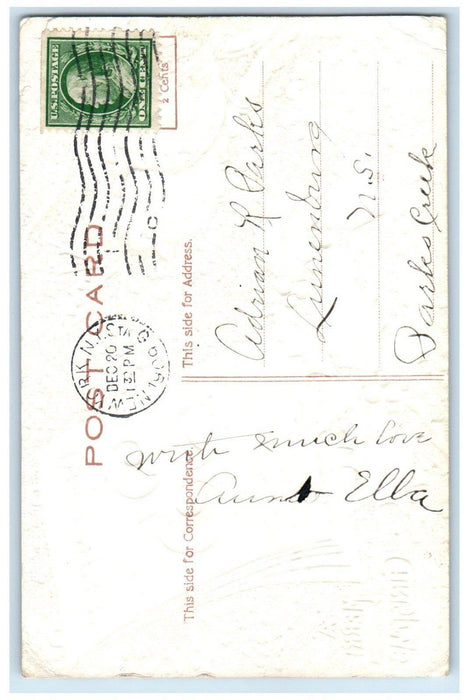 POST CARD
This side for Correspondence.
This side for Address.
U.S. POSTAGE
ONE CENT
2 Cents
NEW YORK, N.Y.
STA G
DEC 20
1 30 PM
Adrian R Parks
Lunenburg
N.S.
Parks Creek
With much love
Aunt Ella